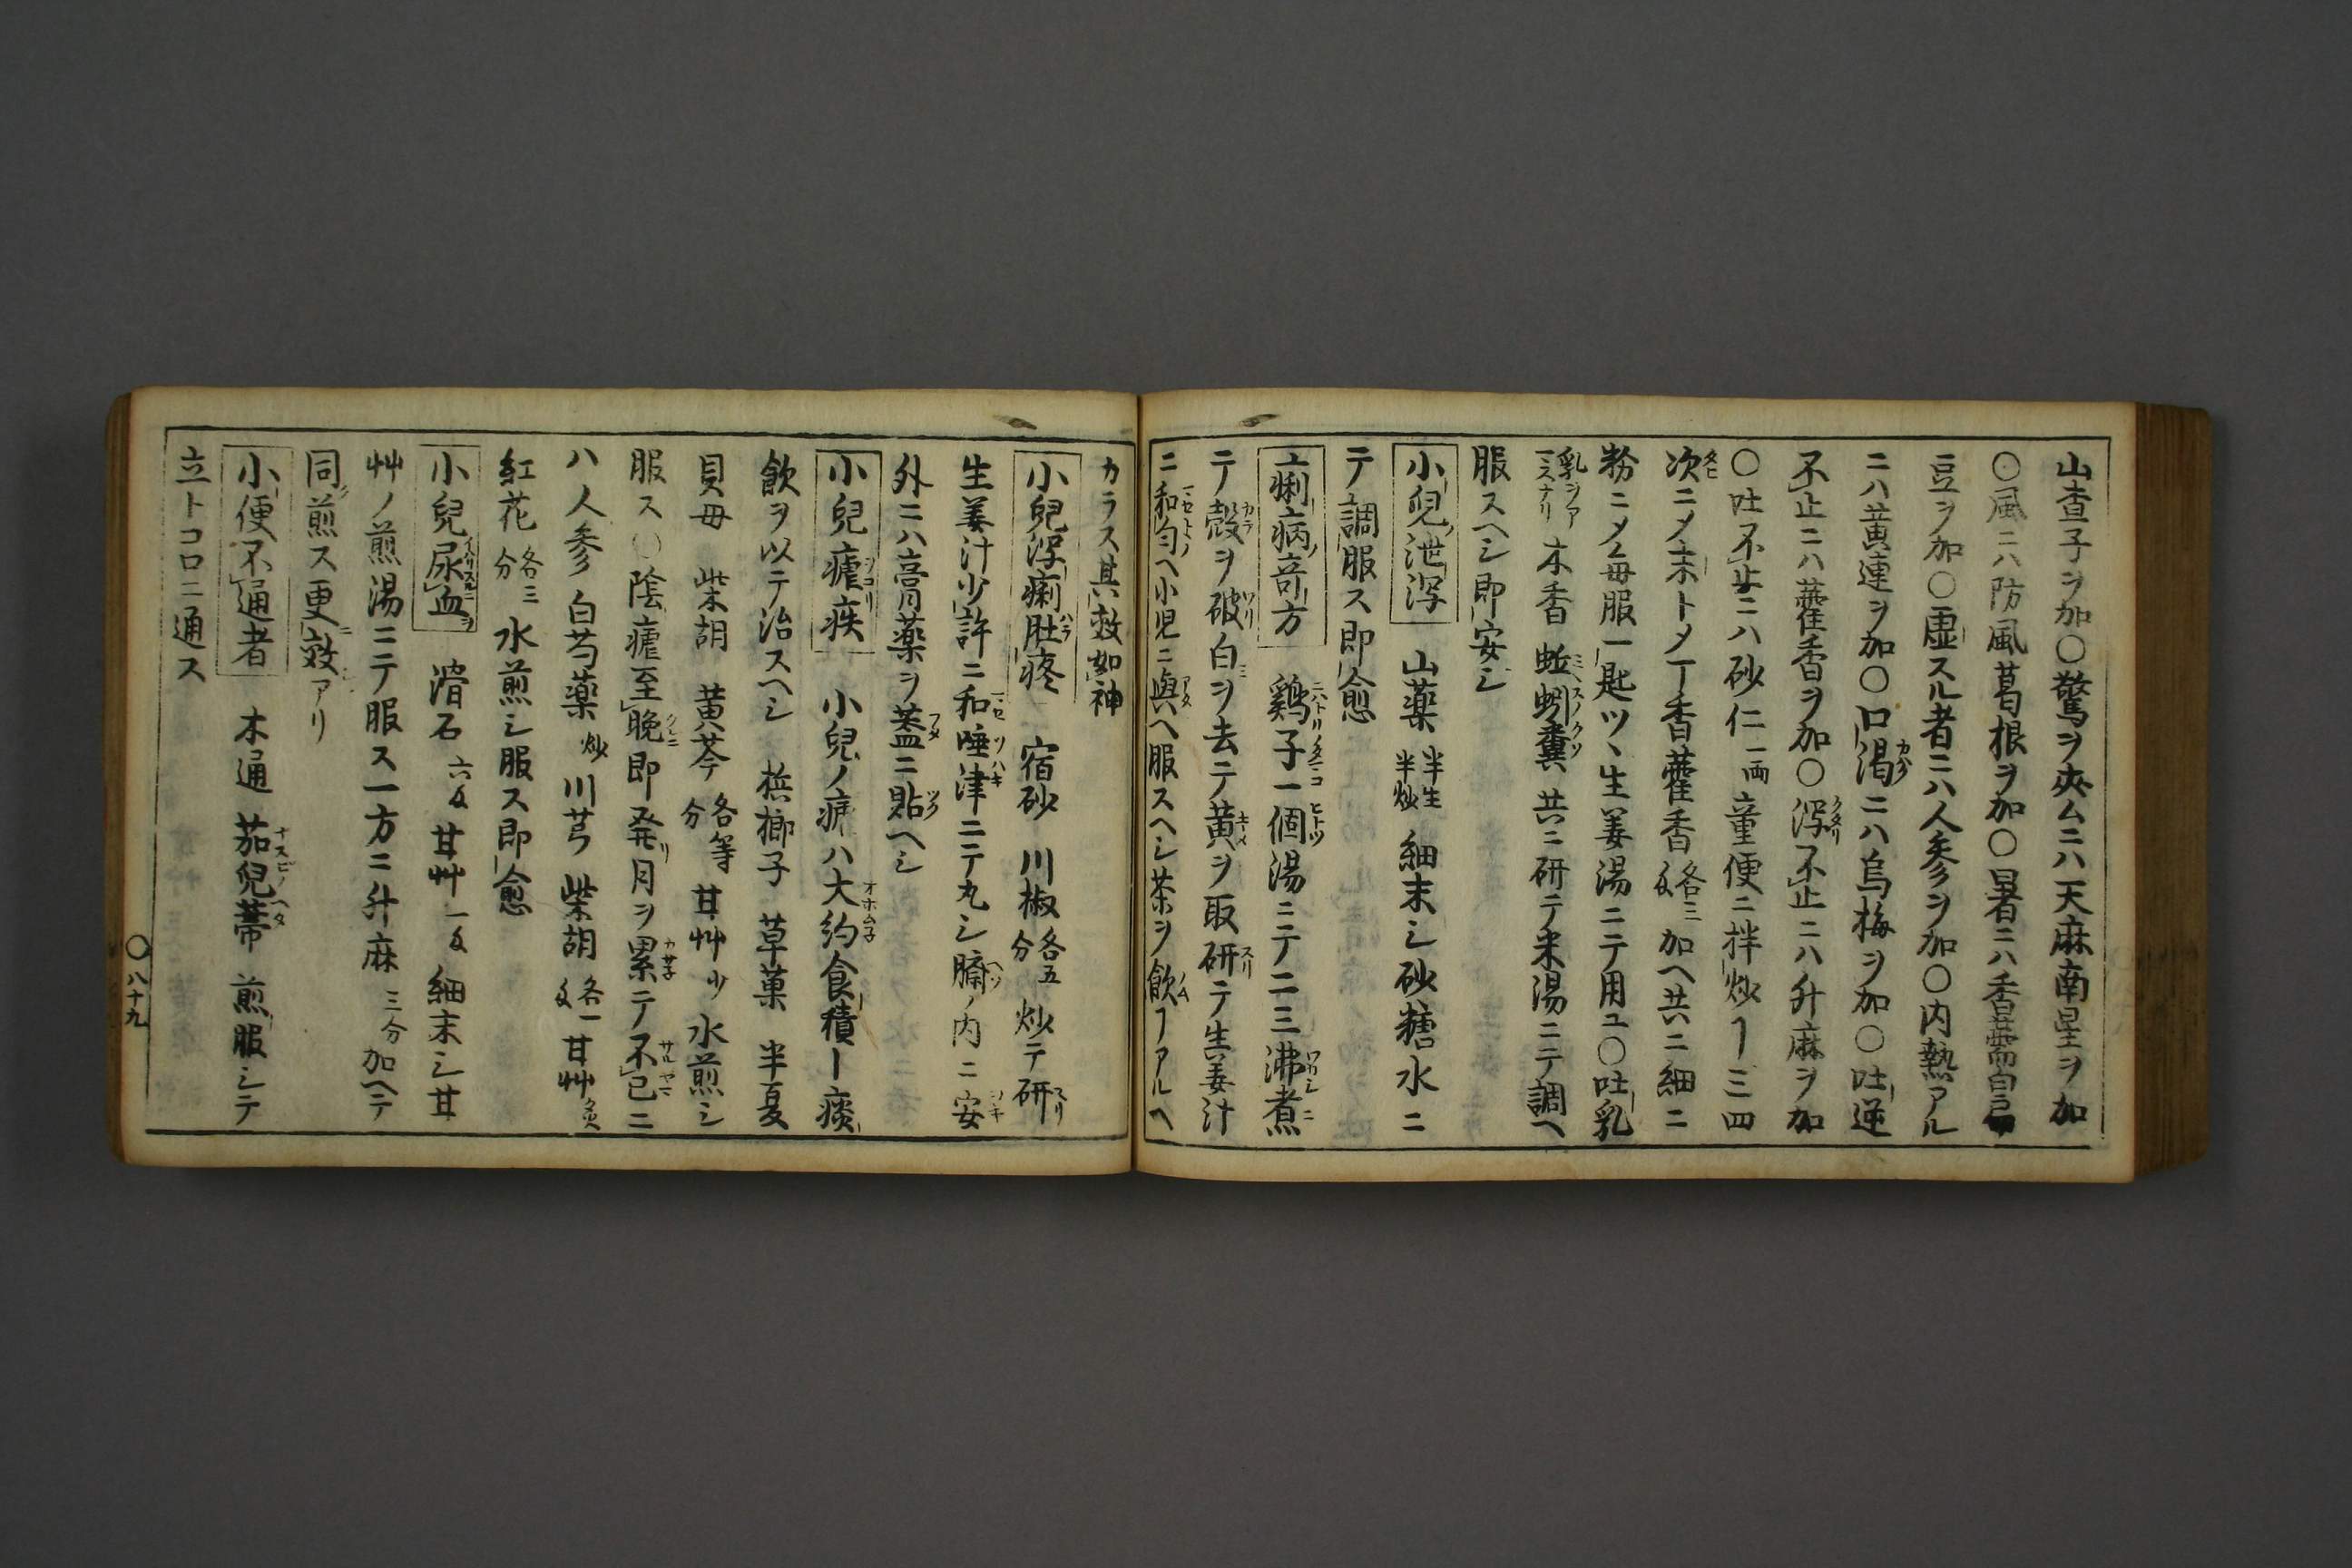 山查子ヲ加〇驚ヲ夾ムニハ天麻南星ヲ加
〇風ニハ防風葛根ヲ加〇暑ニハ香薷白扁
豆ヲ加〇虚スル者ニハ人参ヲ加〇内熱アル
ニハ黄連ヲ加〇口渇ニハ烏梅ヲ加〇吐逆
不止ニハ藿香ヲ加〇瀉不止ニハ升麻ヲ加
〇吐不止ニハ砂仁一両童便ニ拌炒ヿ三四
次ニメ末トメ丁香藿香各三匁加ヘ共ニ細ニ
粉ニメ毎服一匙ツヽ生姜湯ニテ用ユ〇吐乳
乳ヲアマスナリ木香 蚯蚓糞 共ニ研テ米湯ニテ調ヘ
服スヘシ即安シ
小兒泄瀉 山薬半生半炒 細末シ砂糖水ニ
テ調服ス即愈
亠痢病竒方 鷄子一個湯ニテ二三沸煮
テ殻ヲ破白ヲ去テ黄ヲ取研テ生姜汁
ニ和匀ヘ小児ニ與ヘ服スヘシ茶ヲ飲ヿアルヘ
カラス其效如神
小兒瀉痢肚疼 宿砂 川椒各五分 炒テ研
生姜汁少許ニ和唾津ニテ丸シ臍ノ内ニ安
外ニハ膏薬ヲ蓋ニ貼ヘシ
小兒瘧疾 小兒ノ瘧ハ大約食積ト痰
飲ヲ以テ治スヘシ 梹榔子 草菓 半夏
貝母 柴胡 黄芩各等分 甘艸少 水煎シ
服ス〇陰瘧至晚即発月ヲ累テ不已ニ
ハ人参 白芍薬炒 川芎 柴胡各一匁 甘艸炙
紅花各三分 水煎シ服ス即愈
小兒尿血 滑石六匁 甘艸一匁 細末シ甘
艸ノ煎湯ニテ服ス一方ニ升麻三分加ヘテ
同煎ス更效アリ
小便不通者 木通 茄兒蒂 煎服シテ
立トコロニ通ス
〇八十九